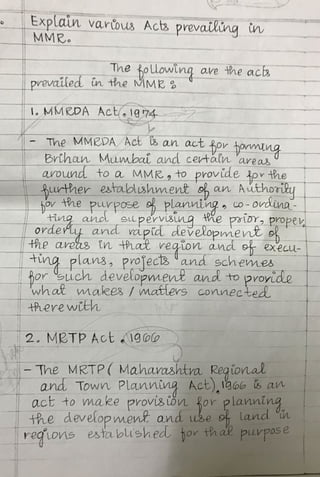 Explain various Acts prevailing in
MMR.
The following are the acts
prevailed in the MMR :
1. MMRDA Act, 1974
- The MMRDA Act is an act for forming
Brihan Mumbai and certain areas
around to a MMR, to provide for the
further establishment of an Authority
for the purpose of planning, co-ordina-
ting and supervising the prior, proper,
orderly and rapid development of
the areas in that region and of execu-
ting plans, projects and schemes
for such development and to provide
what makes / matters connected
therewith
2. MRTP Act, 1966
- The MRTP ( Maharashtra Regional
and Town Planning Act), 1966 is an
act to make provision for planning
the development and use of land in
regions established for that purpose